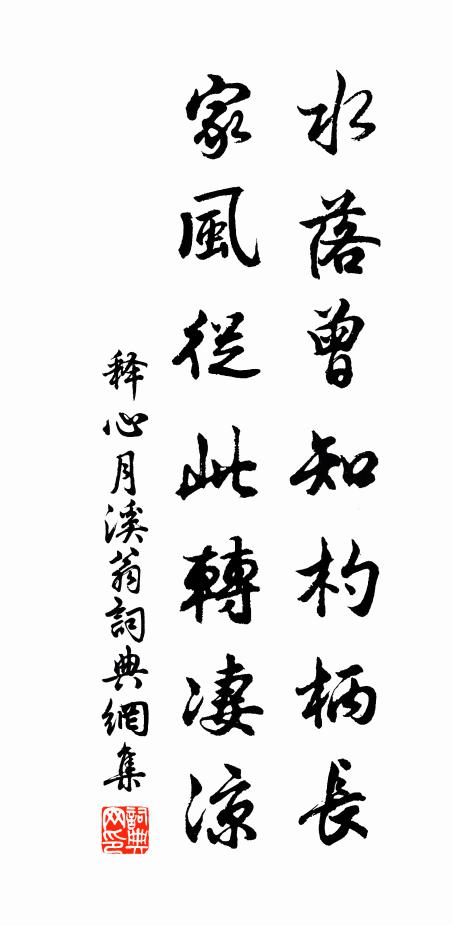 水落曾知杓柄長
家風從此轉淒涼
释心月溪翁詞典網集
詞典网印